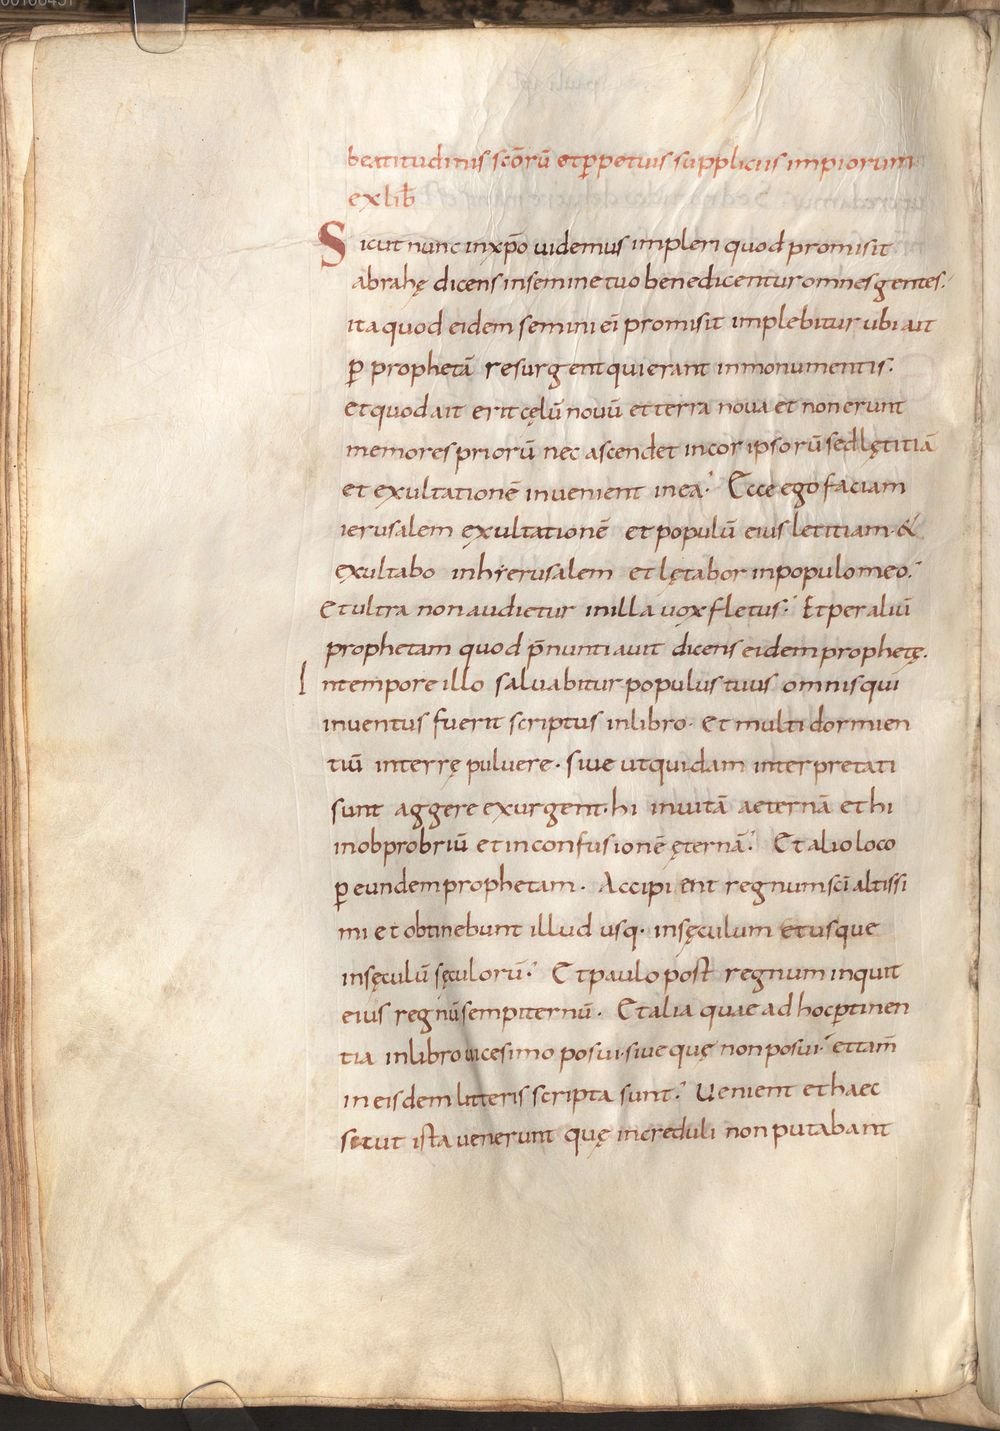 beatitudinis scōrū et ꝑpetuis suppliciis impiorum
ex lib̄
Sicut nunc in xp̄o uidemus impleri quod promisit
abrahę dicens in semine tuo benedicentur omnes gentes.
ita quod eidem semini ei promisit implebitur ubi ait
ꝑ prophetā resurgent qui erant in monumentis.
et quod ait erit cęlū nouū et terra noua et non erunt
memores priorū nec ascendet in cor ipsorū sed lętitiā
et exultationē inuenient in ea. Ecce ego faciam
ierusalem exultationē et populū eius letitiam. &
exultabo in hyerusalem et lętabor in populo meo.
Et ultra non audietur in illa uox fletus. Et per aliū
prophetam quod p̄nuntiauit dicens eidem prophetę.
In tempore illo saluabitur populus tuus omnis qui
inuentus fuerit scriptus in libro. et multi dormien
tiū in terrę puluere. siue ut quidam interpretati
sunt aggere exurgent. hi in uitā aeternā et hi
in obprobriū et in confusionē ęternā. Et alio loco
ꝑ eundem prophetam. Accipient regnum sc̄i altissi
mi et obtinebunt illud usq. in sęculum et usque
in sęculū sęculorū. Et paulo post regnum inquit
eius regnū sempiternū. Et alia quae ad hoc ꝑtinen
tia in libro uicesimo posui. siue quę non posui. et tam̄
in eisdem litteris scripta sunt. Uenient et haec
sicut ista uenerunt quę increduli non putabant